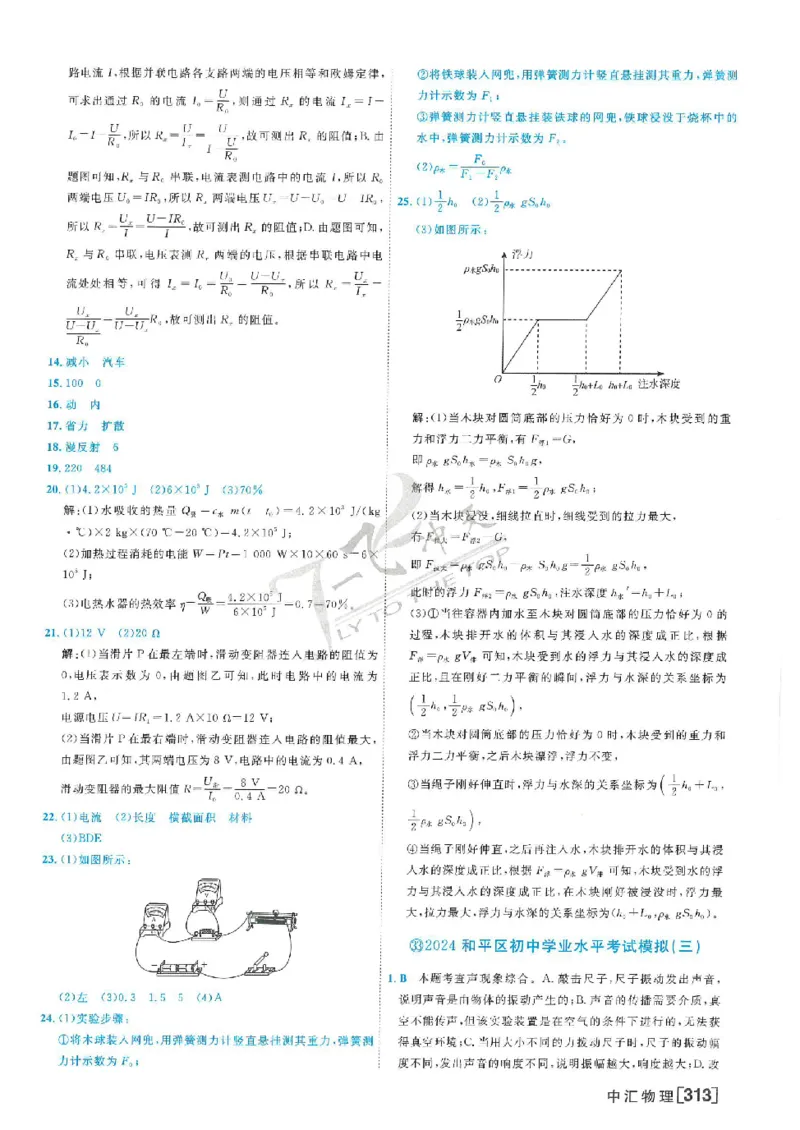 路电流 I,根据并联电路各支路两端的电压相等和欧姆定律,
可求出通过 R₀ 的电流 I₀=U/R₀,则通过 Rₓ 的电流 Iₓ=I−
I₀=I−U/R₀,所以 Rₓ=U/Iₓ=U/(I−U/R₀),故可测出 Rₓ 的阻值;B.由
题图可知,Rₓ 与 R₀ 串联,电流表测电路中的电流 I,所以 R₀
两端电压 U₀=IR₀,所以 Rₓ 两端电压 Uₓ=U−U₀=U−IR₀,
所以 Rₓ=Uₓ/I=(U−IR₀)/I,故可测出 Rₓ 的阻值;D.由题图可知,
Rₓ 与 R₀ 串联,电压表测 Rₓ 两端的电压,根据串联电路中电
流处处相等,可得 Iₓ=I₀=U₀/R₀=(U−Uₓ)/R₀,所以 Rₓ=Uₓ/Iₓ=
Uₓ/((U−Uₓ)/R₀)=Uₓ/(U−Uₓ)R₀,故可测出 Rₓ 的阻值。
14.减小 汽车
15.100 0
16.动 内
17.省力 扩散
18.漫反射 6
19.220 484
20.(1)4.2×10⁵ J (2)6×10⁵ J (3)70%
解:(1)水吸收的热量 Q吸=c水m(t−t₀)=4.2×10³ J/(kg
·℃)×2 kg×(70 ℃−20 ℃)=4.2×10⁵ J;
(2)加热过程消耗的电能 W=Pt=1 000 W×10×60 s=6×
10⁵ J;
(3)电热水器的热效率 η=Q吸/W=4.2×10⁵ J/6×10⁵ J=0.7=70%。
21.(1)12 V (2)20 Ω
解:(1)当滑片 P 在最左端时,滑动变阻器连入电路的阻值为
0,电压表示数为 0,由题图乙可知,此时电路中的电流为
1.2 A,
电源电压 U=IR₁=1.2 A×10 Ω=12 V;
(2)当滑片 P 在最右端时,滑动变阻器连入电路的阻值最大,
由题图乙可知,其两端电压为 8 V,电路中的电流为 0.4 A,
滑动变阻器的最大阻值 R=U滑/I₀=8 V/0.4 A=20 Ω。
22.(1)电流 (2)长度 横截面积 材料
(3)BDE
23.(1)如图所示:
(2)左 (3)0.3 1.5 5 (4)A
24.(1)实验步骤:
①将木球装入网兜,用弹簧测力计竖直悬挂测其重力,弹簧测
力计示数为 F₀;
②将铁球装入网兜,用弹簧测力计竖直悬挂测其重力,弹簧测
力计示数为 F₁;
③弹簧测力计竖直悬挂装铁球的网兜,铁球浸没于烧杯中的
水中,弹簧测力计示数为 F₂。
(2)ρ木=F₀/(F₁−F₂)ρ水
25.(1)1/2h₀ (2)1/2ρ水gS₀h₀
(3)如图所示:
浮力
ρ水gS₀h₀
1/2ρ水gS₀h₀
O 1/2h₀ 1/2h₀+L₀ h₀+L₀ 注水深度
解:(1)当木块对圆筒底部的压力恰好为 0 时,木块受到的重
力和浮力二力平衡,有 F浮₁=G,
即 ρ水gS₀h水=ρ木S₀h₀g,
解得 h水=1/2h₀,F浮₁=1/2ρ水gS₀h₀;
(2)当木块浸没,细线拉直时,细线受到的拉力最大,
有 F拉大=F浮₂−G,
即 F拉大=ρ水gS₀h₀−ρ木S₀h₀g=1/2ρ水gS₀h₀,
此时的浮力 F浮₂=ρ水gS₀h₀,注水深度 h水′=h₀+L₀;
(3)①当往容器内加水至木块对圆筒底部的压力恰好为 0 的
过程,木块排开水的体积与其浸入水的深度成正比,根据
F浮=ρ水gV排 可知,木块受到水的浮力与其浸入水的深度成
正比,且在刚好二力平衡的瞬间,浮力与水深的关系坐标为
(1/2h₀,1/2ρ水gS₀h₀),
②当木块对圆筒底部的压力恰好为 0 时,木块受到的重力和
浮力二力平衡,之后木块漂浮,浮力不变,
③当绳子刚好伸直时,浮力与水深的关系坐标为(1/2h₀+L₀,
1/2ρ水gS₀h₀),
④当绳子刚好伸直,之后再注入水,木块排开水的体积与其浸
入水的深度成正比,根据 F浮=ρ水gV排 可知,木块受到水的浮
力与其浸入水的深度成正比,在木块刚好被浸没时,浮力最
大,拉力最大,浮力与水深的关系坐标为(h₀+L₀,ρ水gS₀h₀)。
㉝2024 和平区初中学业水平考试模拟(三)
1.B 本题考查声现象综合。A.敲击尺子,尺子振动发出声音,
说明声音是由物体的振动产生的;B.声音的传播需要介质,真
空不能传声,但该实验装置是在空气的条件下进行的,无法获
得真空环境;C.当用大小不同的力拨动尺子时,尺子的振动幅
度不同,发出声音的响度不同,说明振幅越大,响度越大;D.改
中汇物理[313]
一飞冲天
FLY TO THE TOP